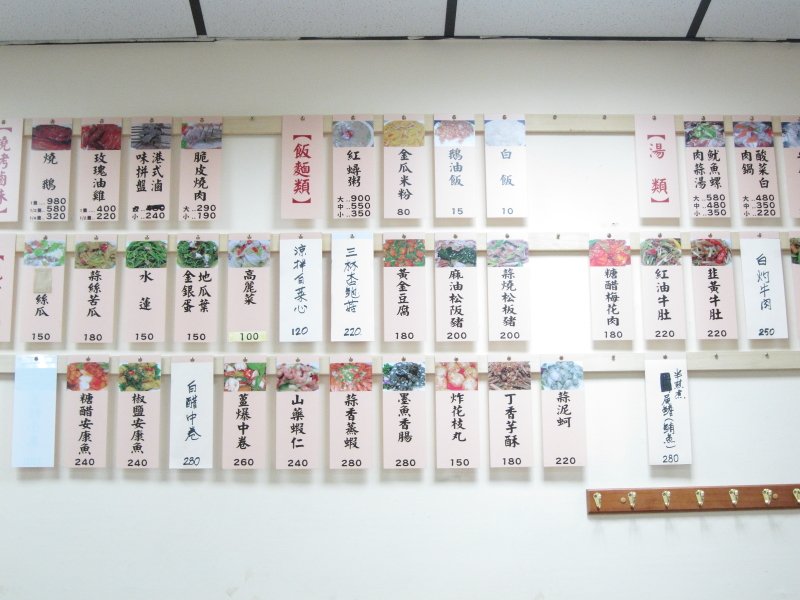 【燒烤滷味
燒鵝
1隻..980
1/2隻..580
320
玫瑰油雞
400
220
港式滷味拼盤
小..240
脆皮燒肉
大..290
小..190
【飯麵類】
紅蟳粥
大..900
中..550
小..350
金瓜米粉
80
鵝油飯
15
白飯
10
【湯類】
魷魚螺肉蒜湯
大..580
中..480
小..350
酸菜白肉鍋
大..480
中..350
小..220
絲瓜
150
蒜絲苦瓜
180
水蓮
150
地瓜葉金銀蛋
150
高麗菜
100
涼拌白菜心
120
三杯杏鮑菇
220
黃金豆腐
180
麻油松阪豬
200
蒜燒松板豬
200
糖醋梅花肉
180
紅油牛肚
220
韭黃牛肚
220
白灼牛肉
250
糖醋安康魚
240
椒鹽安康魚
240
白醋中卷
230
蔥爆中卷
260
山藥蝦仁
240
蒜香蒸蝦
280
墨魚香腸
280
炸花枝丸
150
丁香芋酥
180
蒜泥蚵
220
280